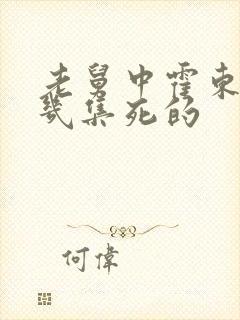 老舅中霍東
幾集死的
何偉